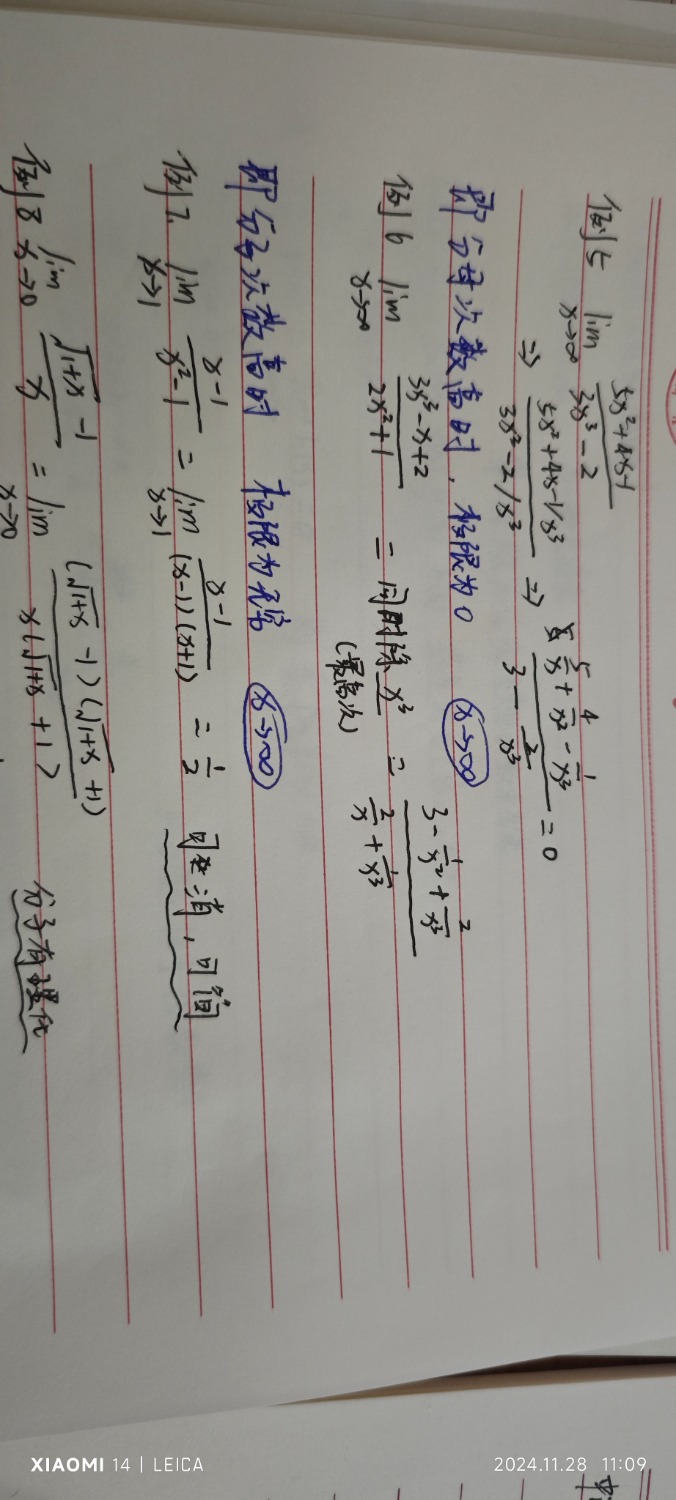 例5 lim x→∞ (5x²+4x-1)/(3x³-2)
⇒ (5x²+4x-1/x³)/(3x³-2/x³) ⇒ (5/x + 4/x² - 1/x³)/(3 - 2/x³) = 0
即分母次数高时，极限为0 x→∞
例6 lim x→∞ (3x³-x+2)/(2x²+1) = 同时除x³ (最高次) = (3 - 1/x² + 2/x³)/(2/x + 1/x³)
即分子次数高时 极限为无穷 x→∞
例7. lim x→1 (x-1)/(x²-1) = lim x→1 (x-1)/((x-1)(x+1)) = 1/2 可消，可简
例8 lim x→0 (√1+x - 1)/x = lim x→0 (√1+x - 1)(√1+x + 1)/x(√1+x + 1) 分子有理化
XIAOMI 14 | LEICA
2024.11.28 11:09